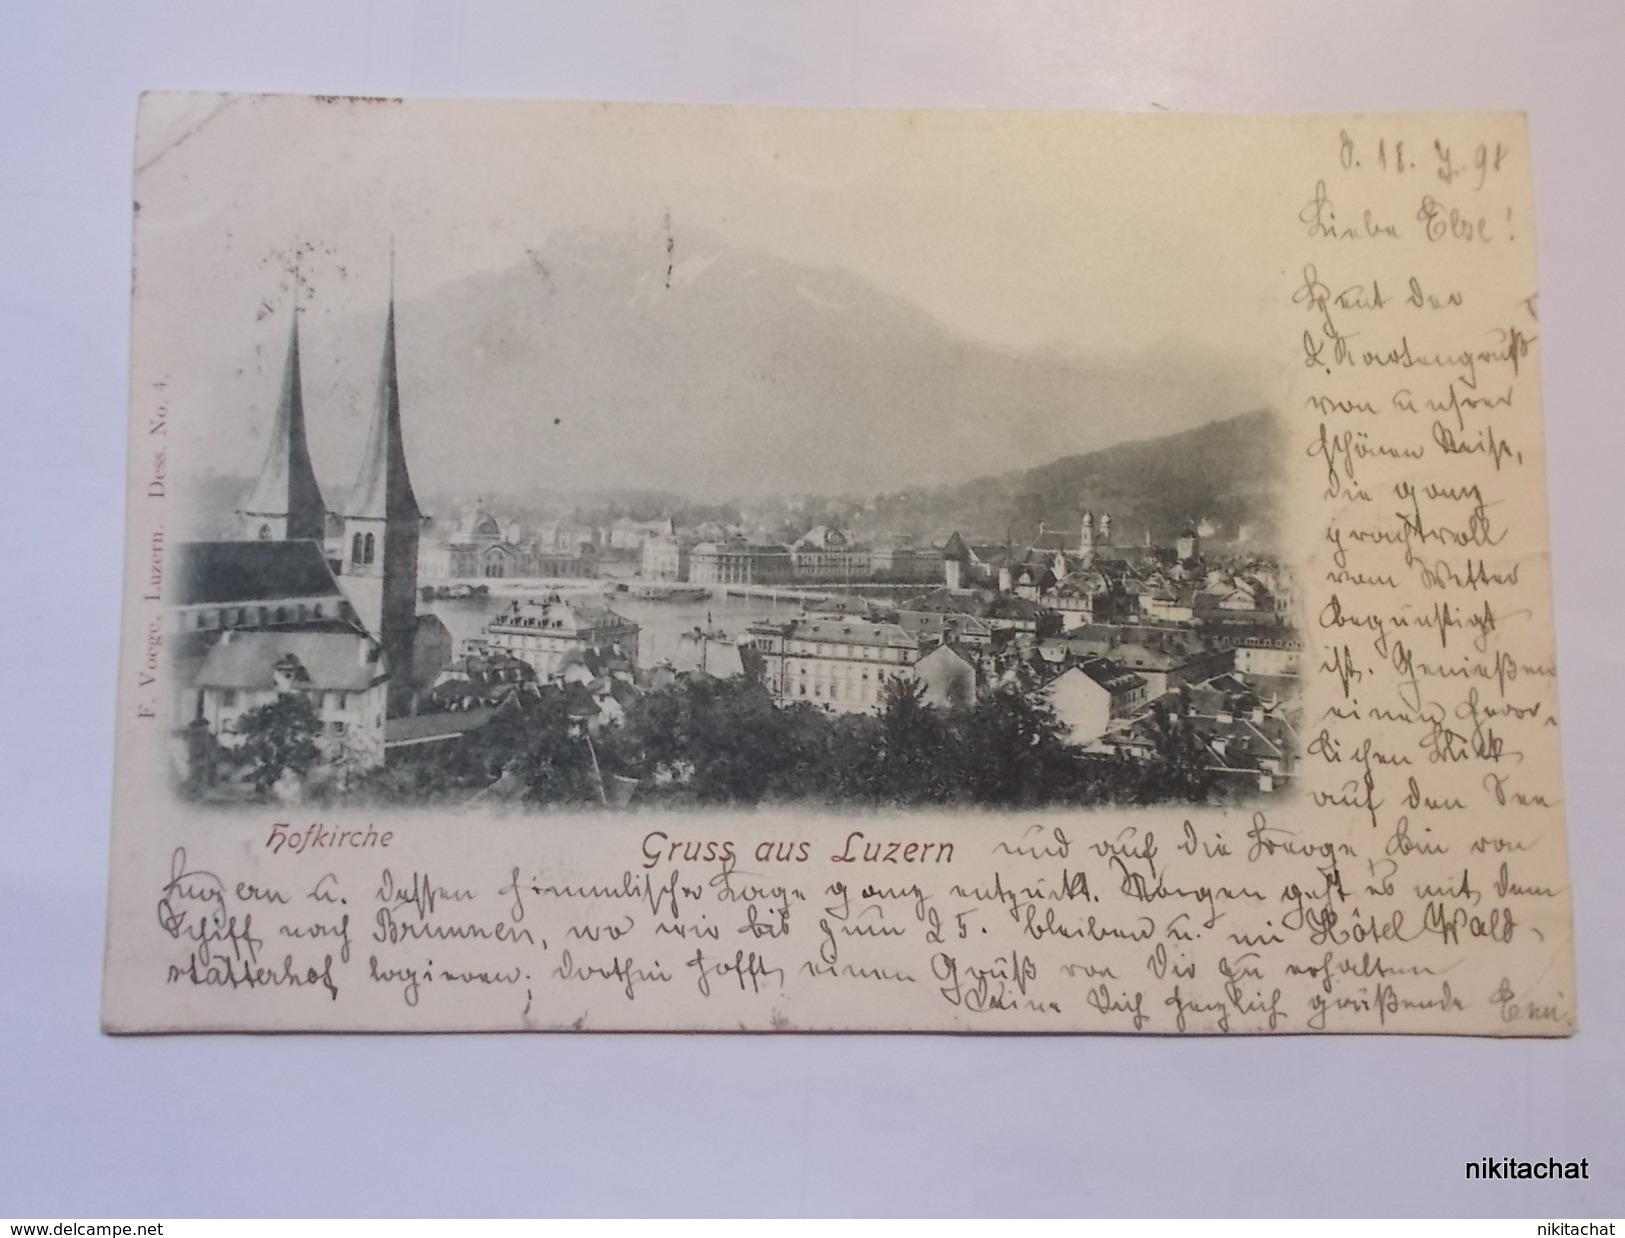 F. Voege, Luzern. Dess. No. 4.
18. 7. 98
Liebe Else!
Heut der
2. Kartengruß
von unsrer
schönen Reise,
die ganz
prachtvoll
vom Wetter
begünstigt
ist. Genießen
einen herr-
lichen Blick
auf den See
Hofkirche
Gruss aus Luzern
und auf die Berge, bin von
Luzern u. dessen himmlischer Lage ganz entzückt. Morgen geht es mit dem
Schiff nach Brunnen, wo wir bis zum 25. bleiben u. im Hôtel Wald-
stätterhof logieren; dorthin hofft einen Gruß von Dir zu erhalten
Deine Dich herzlich grüßende Emi.
nikitachat
www.delcampe.net
nikitachat